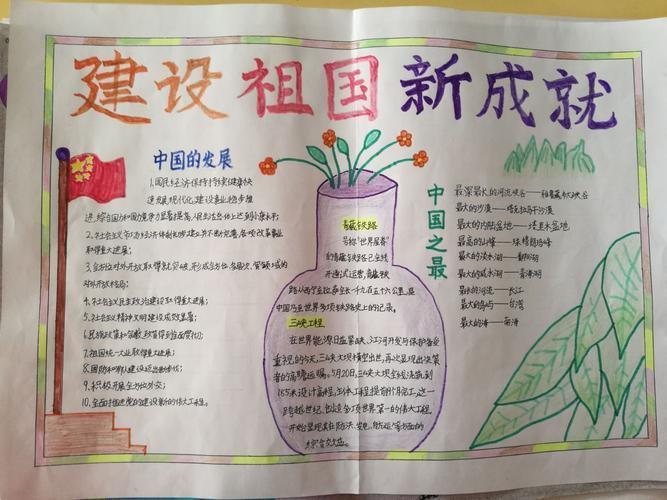 建设祖国新成就
中国的发展
1.国民经济保持持续健康快
速发展,现代化建设事业稳步推
进,综合国力和国际竞争力显著提高,人民生活总体上达到小康水平;
2.社会主义市场经济体制初步建立并不断完善,各项改革事业
取得重大进展;
3.全方位对外开放取得新突破,形成全方位,多层次,宽领域的
对外开放格局;
4.社会主义民主政治建设取得重大进展;
5.社会主义精神文明建设成效显著;
6.民族政策和宗教政策得到全面贯彻;
7.祖国统一大业取得重大进展;
8.国防和军队建设迈出新步伐;
9.积极开展全方位外交;
10.全面推进党的建设新的伟大工程。
青藏铁路
号称“世界屋脊”
的青藏铁路已全线
开通试运营,青藏铁
路从西宁至拉萨全长一千九百五十六公里,是
中国乃至世界多项铁路史上的记录。
三峡工程
在世界能源日益紧缺,江河开发与保护备受
重视的今天,三峡大坝横空出世,再次显现出决策
者的高瞻远瞩。5月20日,三峡大坝全线浇筑到
185米设计高程,主体工程提前9个月完工,这一
跨越世纪,创造多项世界第一的伟大工程,
开始显现其在防洪、发电、航运等方面的
综合效益。
中国之最
最深最长的河流峡谷——雅鲁藏布大峡谷
最大的沙漠——塔克拉玛干沙漠
最大的内陆盆地——塔里木盆地
最高的山峰——珠穆朗玛峰
最大的淡水湖——鄱阳湖
最大的咸水湖——青海湖
最长的河流——长江
最大的岛屿——台湾
最大的海——南海